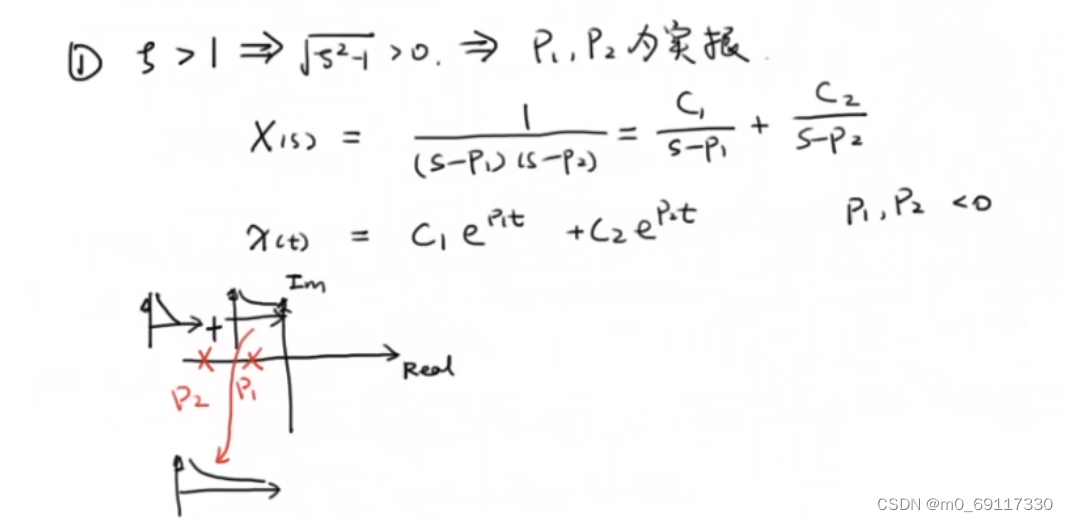 ① ξ > 1 ⇒ √ξ²-1 > 0. ⇒ P₁, P₂ 为实根.
X(s) = 1/((s-P₁)(s-P₂)) = C₁/(s-P₁) + C₂/(s-P₂)
x(t) = C₁e^{P₁t} + C₂e^{P₂t} P₁, P₂ <0
Im
+
Real
P₂ P₁
CSDN @m0_69117330